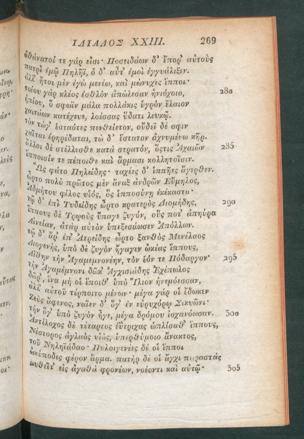 ΙΛΙΑΔΟΣ XXIII. 269
ἀθάνατοι τε γάρ εἰσι· Ποσειδάων δ' ἔπορ' αὐτοὺς
πατρὶ ἐμῷ Πηλῆϊ, ὁ δ' αὖτ' ἐμοὶ ἐγγυάλιξεν.
ἀλλ' ἤτοι μὲν ἐγὼ μενέω, καὶ μώνυχες ἵπποι·
τοίου γὰρ κλέος ἐσθλὸν ἀπώλεσαν ἡνιόχοιο, 280
ἠπίου, ὅ σφωϊν μάλα πολλάκις ὑγρὸν ἔλαιον
χαιτάων κατέχευε, λοέσσας ὕδατι λευκῷ.
τὸν τώγ' ἑσταότες πενθείετον, οὔδεϊ δέ σφιν
χαῖται ἐρηρέδαται, τὼ δ' ἕστατον ἀχνυμένω κῆρ.
ἄλλοι δὲ στέλλεσθε κατὰ στρατὸν, ὅστις Ἀχαιῶν 285
ἵπποισίν τε πέποιθε καὶ ἅρμασι κολλητοῖσιν.
Ὣς φάτο Πηλείδης· ταχέες δ' ἱππῆες ἄγερθεν.
ὦρτο πολὺ πρῶτος μὲν ἄναξ ἀνδρῶν Εὔμηλος,
Ἀδμήτου φίλος υἱὸς, ὃς ἱπποσύνῃ ἐκέκαστο·
τῷ δ' ἐπὶ Τυδείδης ὦρτο κρατερὸς Διομήδης, 290
ἵππους δὲ Τρωοὺς ὕπαγε ζυγὸν, οὕς ποτ' ἀπηύρα
Αἰνείαν, ἀτὰρ αὐτὸν ὑπεξεσάωσεν Ἀπόλλων.
τῷ δ' ἄρ' ἐπ' Ἀτρείδης ὦρτο ξανθὸς Μενέλαος
Διογενὴς, ὑπὸ δὲ ζυγὸν ἤγαγεν ὠκέας ἵππους,
Αἴθην τὴν Ἀγαμεμνονέην, τὸν ἑόν τε Πόδαργον· 295
τὴν Ἀγαμέμνονι δῶκ' Ἀγχισιάδης Ἐχέπωλος
δῶρ', ἵνα μή οἱ ἕποιθ' ὑπὸ Ἴλιον ἠνεμόεσσαν,
ἀλλ' αὐτοῦ τέρποιτο μένων· μέγα γάρ οἱ ἔδωκεν
Ζεὺς ἄφενος, ναῖεν δ' ὅγ' ἐν εὐρυχόρῳ Σικυῶνι·
τὴν ὅγ' ὑπὸ ζυγὸν ἦγε, μέγα δρόμου ἰσχανόωσαν. 300
Ἀντίλοχος δὲ τέταρτος ἐΰτριχας ὡπλίσαθ' ἵππους,
Νέστορος ἀγλαὸς υἱὸς, ὑπερθύμοιο ἄνακτος,
τοῦ Νηληϊάδαο· Πυλοιγενέες δέ οἱ ἵπποι
ὠκύποδες φέρον ἅρμα. πατὴρ δέ οἱ ἄγχι παραστὰς
μυθεῖτ' εἰς ἀγαθὰ φρονέων, νοέοντι καὶ αὐτῷ· 305